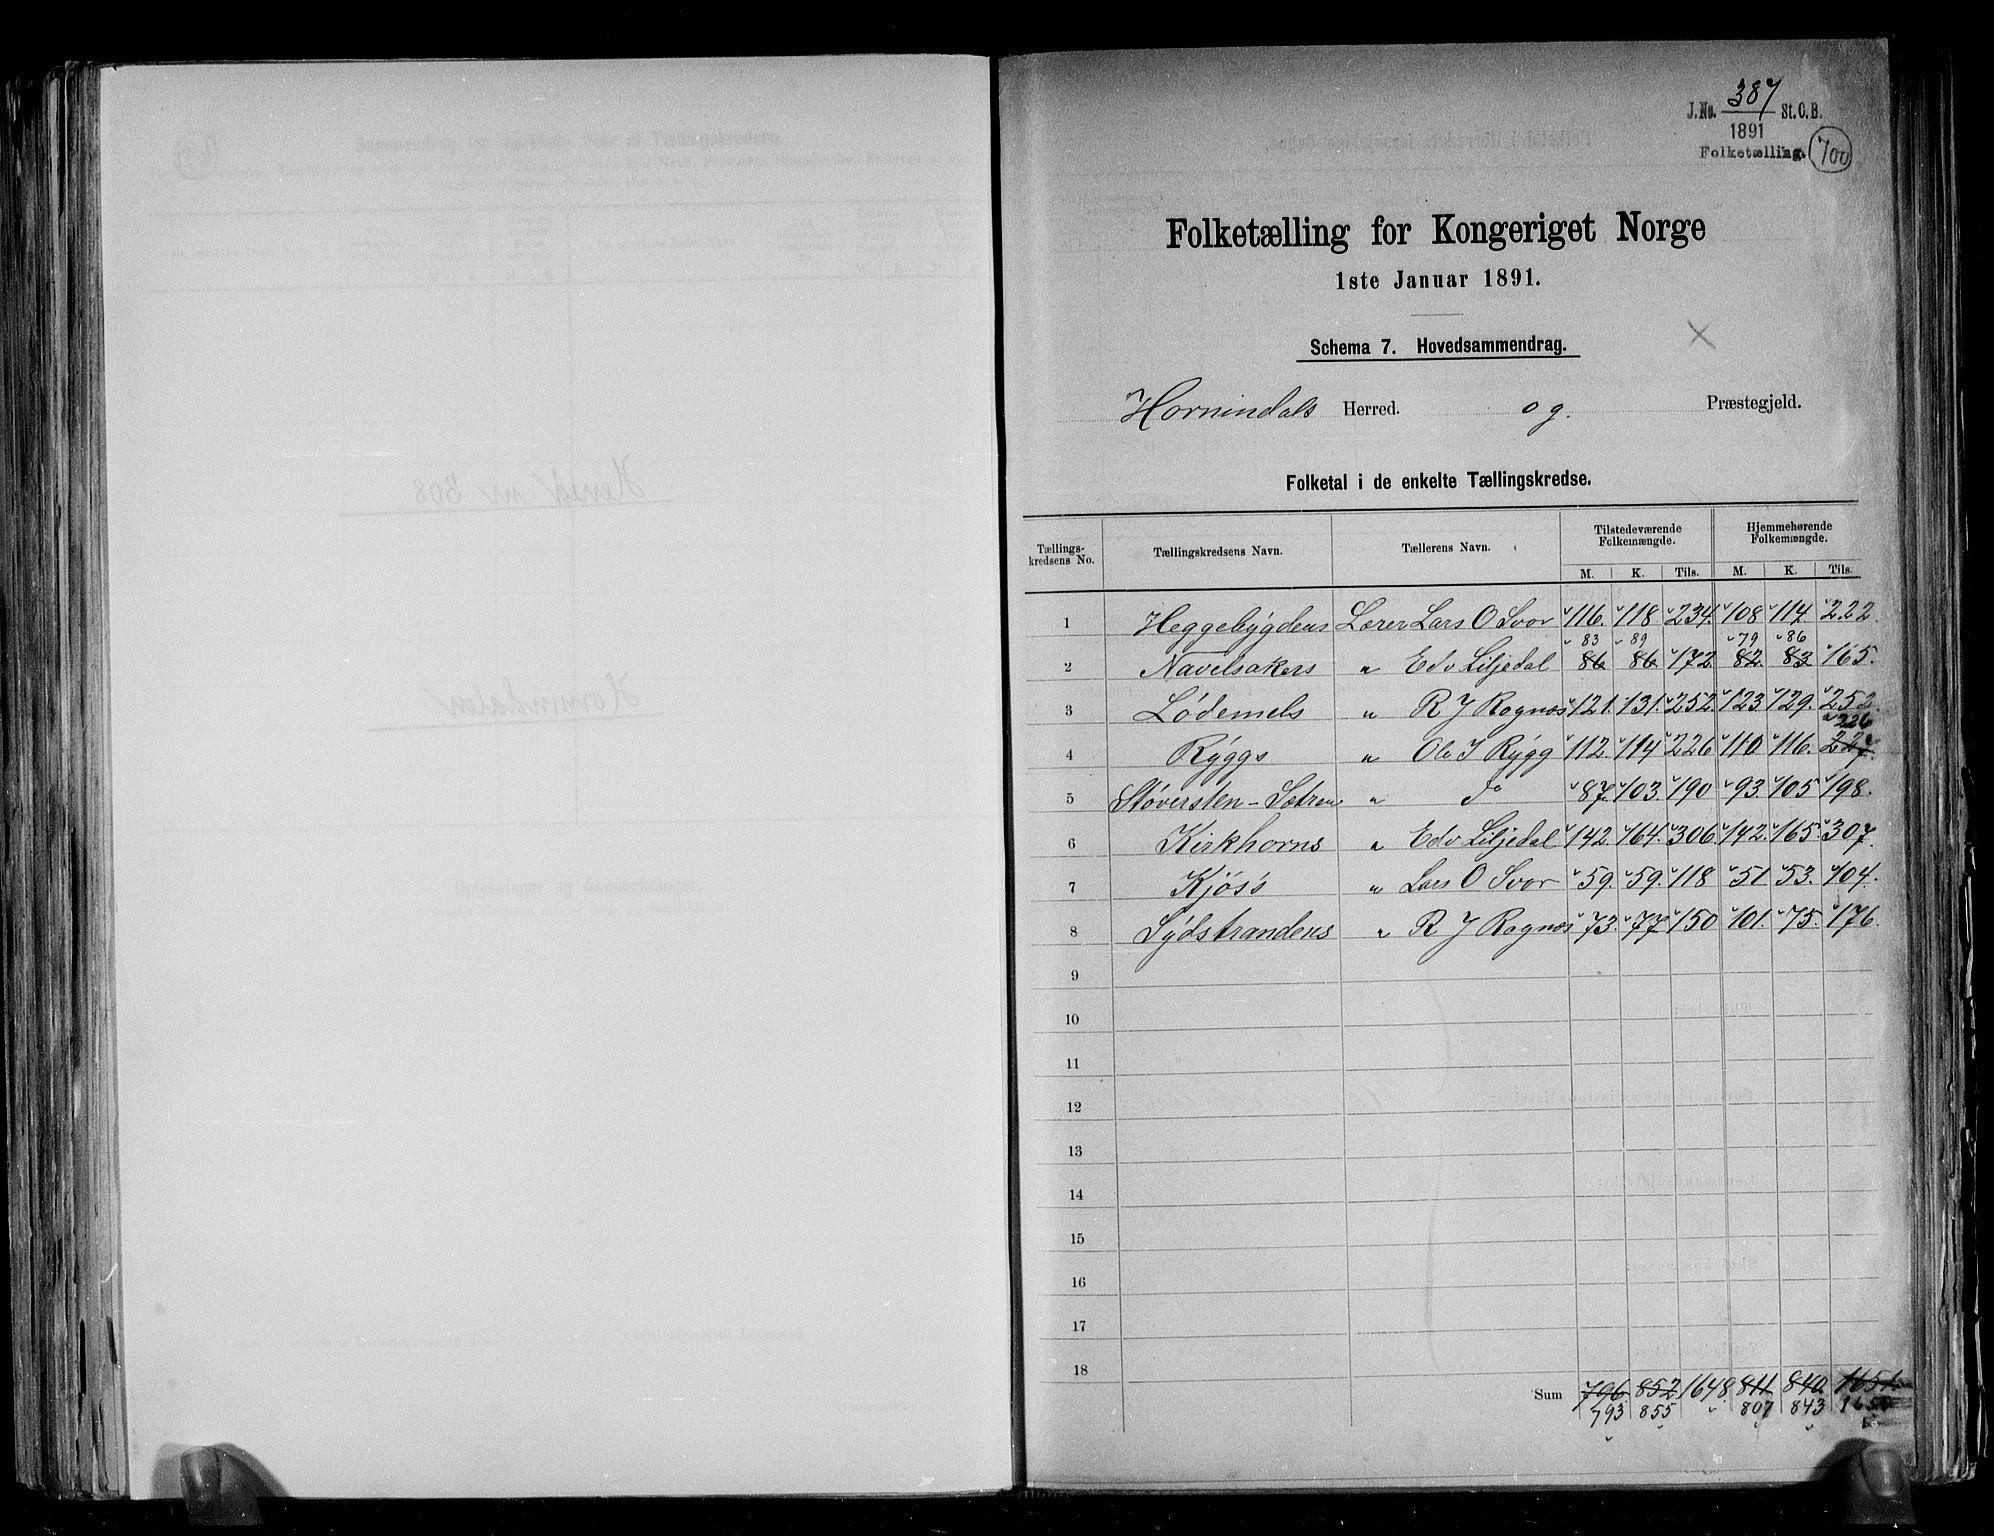 J.No. 387 St.C.B.
1891
Folketælling. 700
Folketælling for Kongeriget Norge
1ste Januar 1891.
Schema 7. Hovedsammendrag.
Hornindals Herred. og. Præstegjeld.
Folketal i de enkelte Tællingskredse.
Tællings-kredsens No. Tællingskredsens Navn. Tællerens Navn. Tilstedeværende Folkemængde. Hjemmehørende Folkemængde.
M. K. Tils. M. K. Tils.
1 Heggebygdens Lærer Lars O Svor 116. 118 234. 108 114. 222.
83 89 79 86
2 Navelsakers " Edv Liljedal 86 86 172 82. 83 165.
3 Lødemels " R J Rognæs 121. 131. 252. 123. 129. 252.
226
4 Ryggs " Ole J Rygg 112. 114 226 110. 116. 227.
5 Støversten-Sætren " do 87. 103. 190 93. 105 198.
6 Kirkhorns " Edv Liljedal 142. 164. 306 142. 165. 307.
7 Kjøs's " Lars O Svor 59. 59. 118 51 53. 104.
8 Sydstrandens " R J Rognæs 73. 77 150 101. 75. 176.
9
10
11
12
13
14
15
16
17
18
Sum 796. 852 1648 811 840. 1651.
793 855 807 843 1650
Herred nr 308
Hornindalen